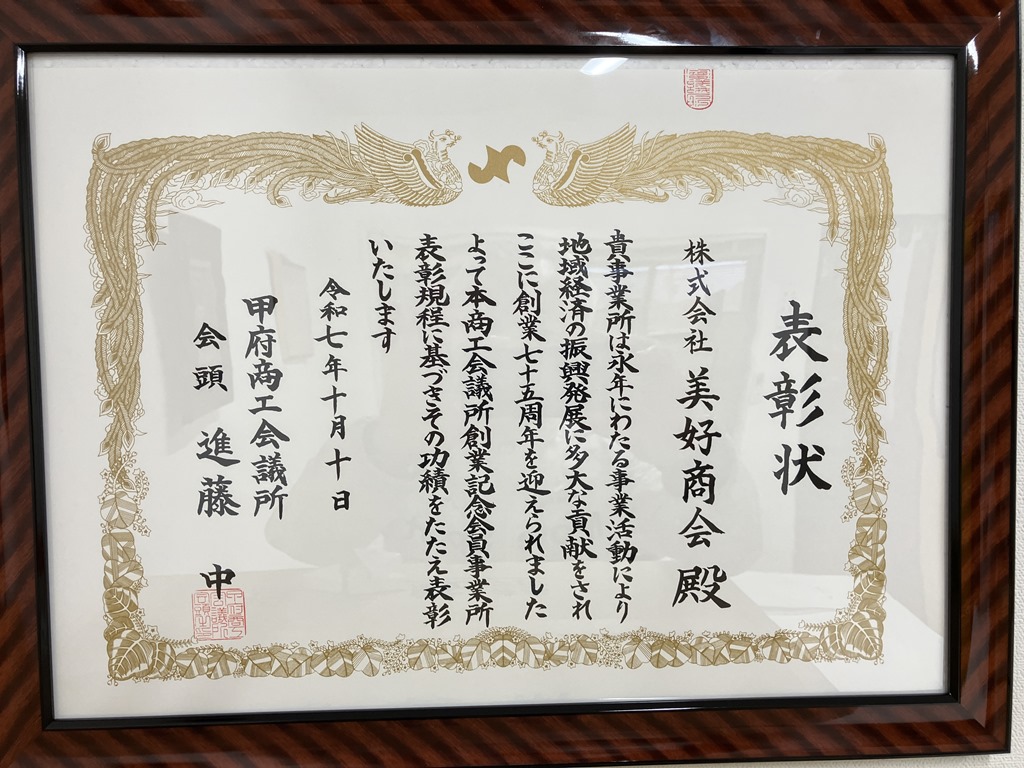 表彰状
株式会社 美好商会 殿
貴事業所は永年にわたる事業活動により
地域経済の振興発展に多大な貢献をされ
ここに創業七十五周年を迎えられました
よって本商工会議所創業記念会員事業所
表彰規程に基づきその功績をたたえ表彰
いたします
令和七年十月十日
甲府商工会議所
会頭 進藤 中